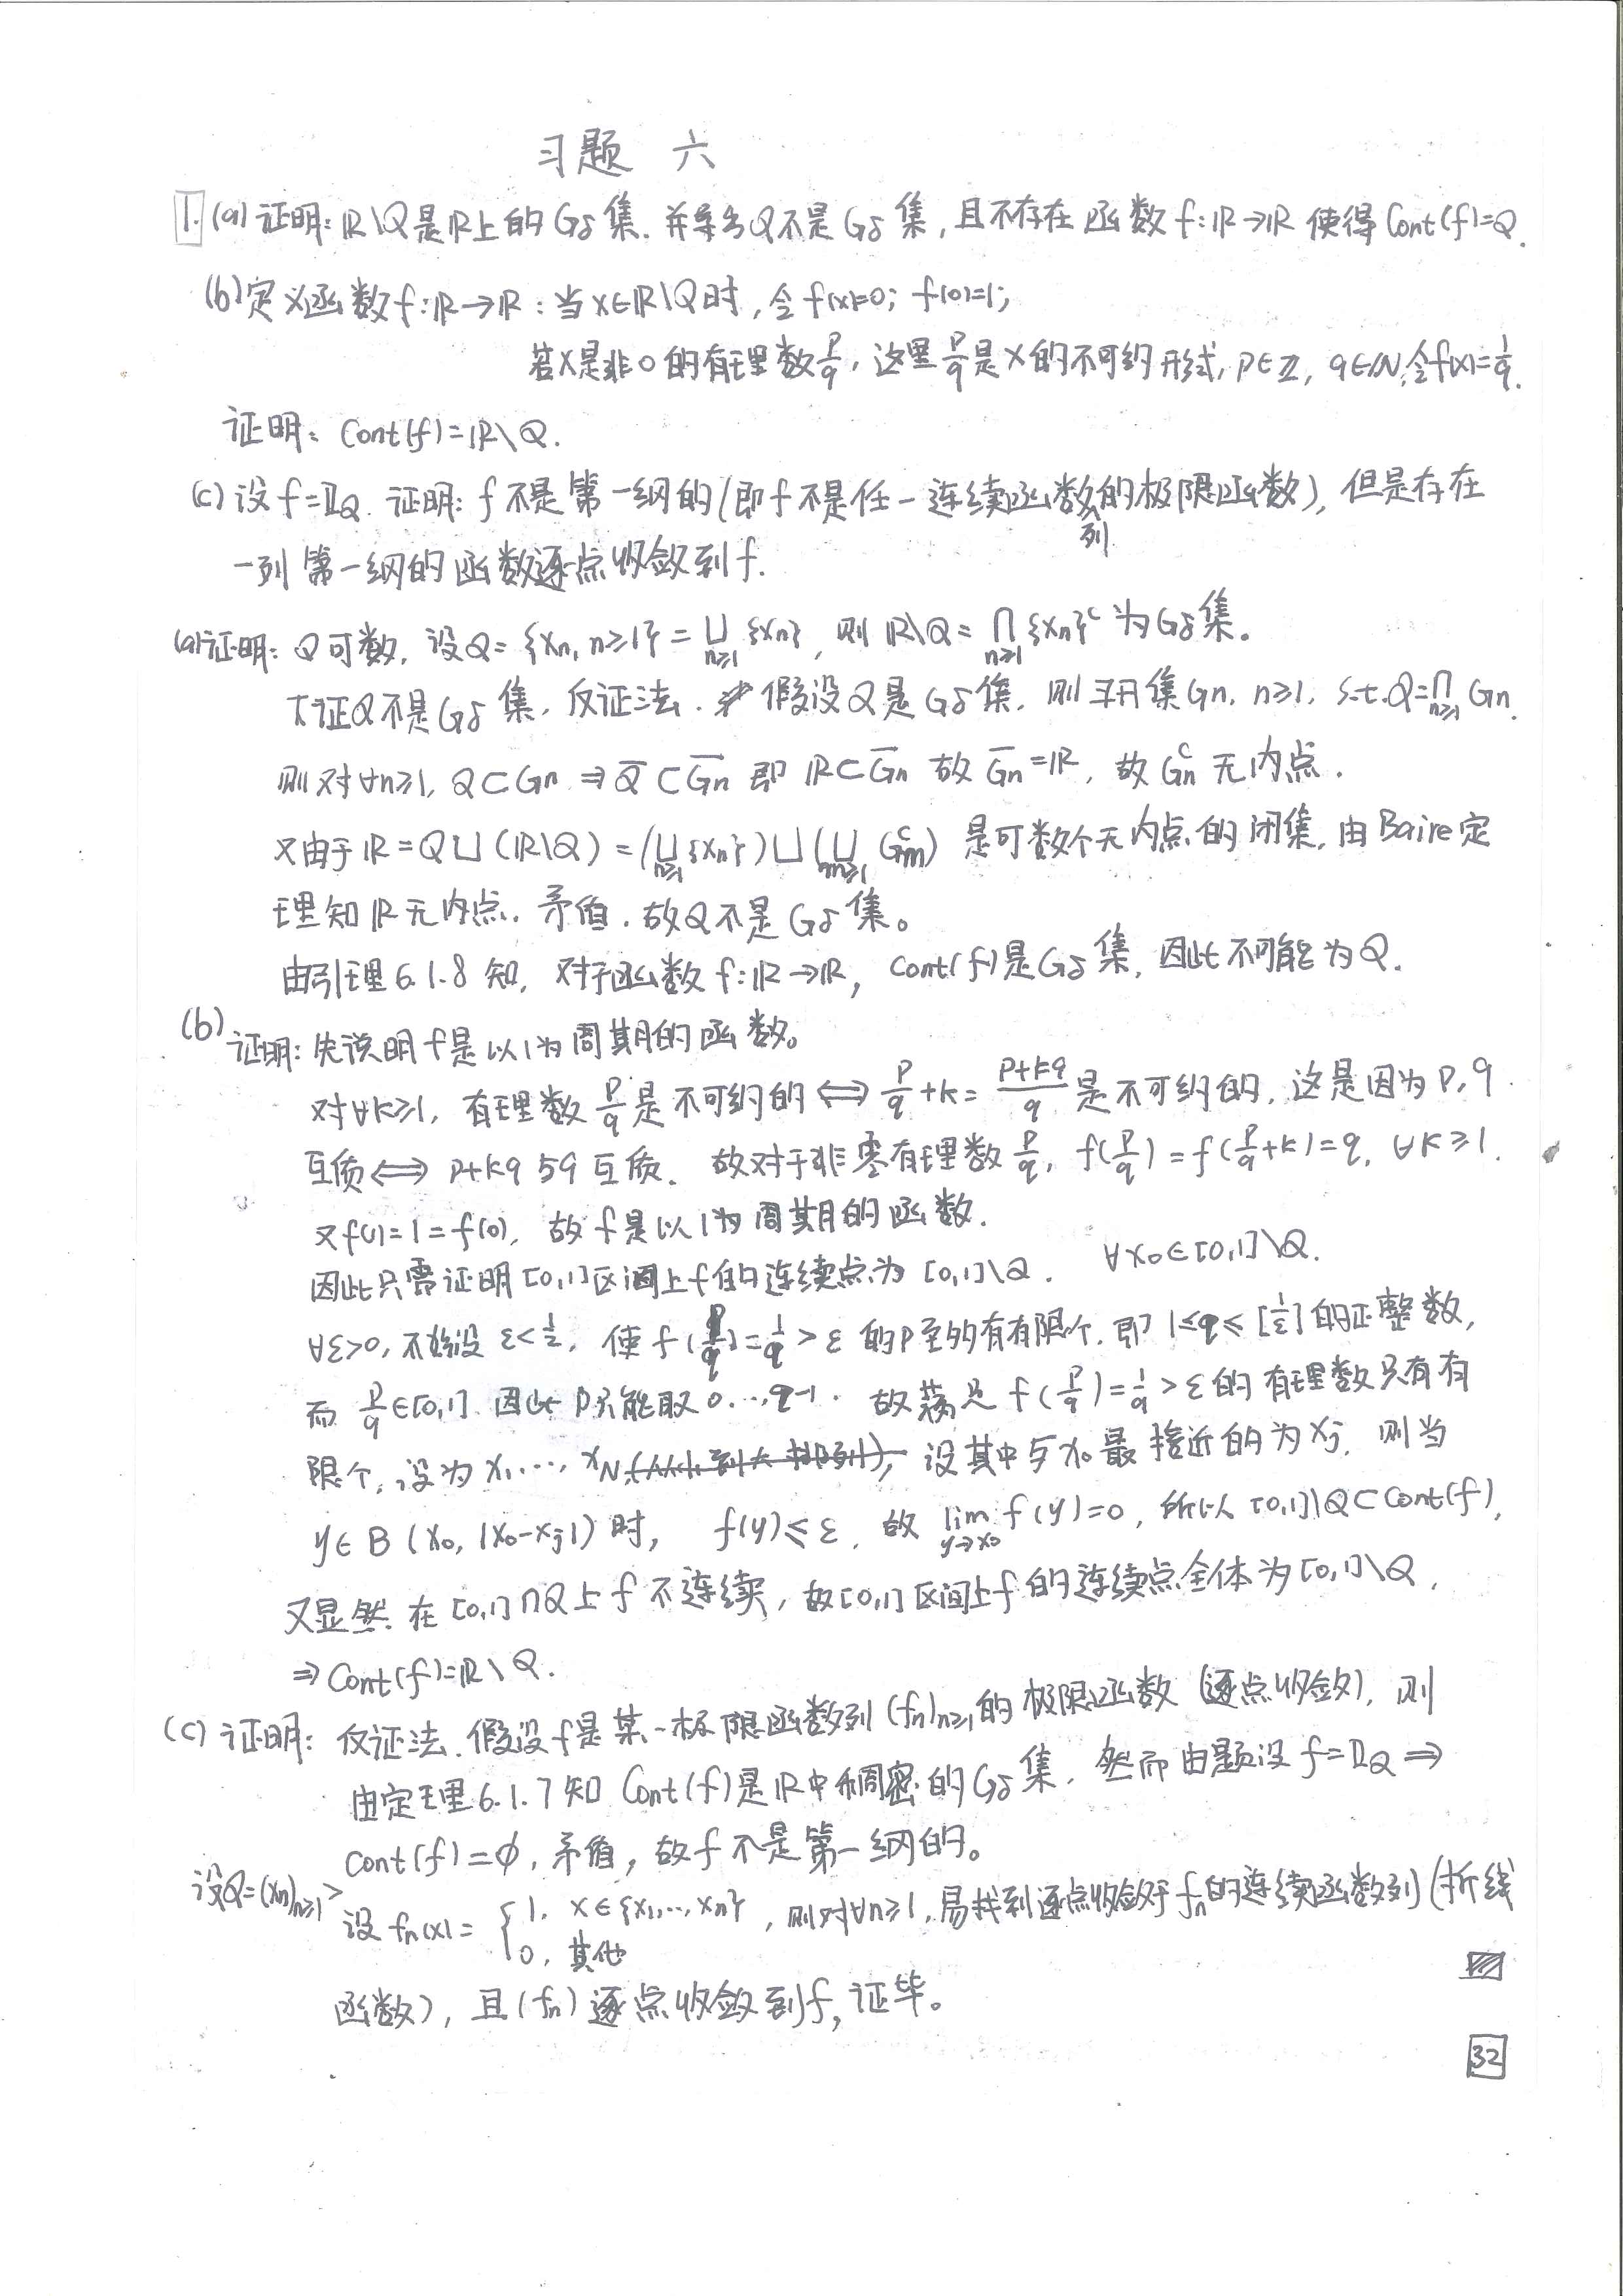 习题 六
1. (a) 证明: ℝ\Q是ℝ上的Gδ集. 并导出Q不是Gδ集, 且不存在函数f:ℝ→ℝ使得Cont(f)=Q.
(b) 定义函数f:ℝ→ℝ: 当x∈ℝ\Q时, 令f(x)=0; f(0)=1;
若x是非0的有理数p/q, 这里p/q是x的不可约形式, p∈ℤ, q∈ℕ, 令f(x)=1/q.
证明: Cont(f)=ℝ\Q.
(c) 设f=𝟙Q. 证明: f不是第一纲的(即f不是任一连续函数列的极限函数), 但是存在
一列第一纲的函数逐点收敛到f.
(a) 证明: Q可数, 设Q={xn, n≥1}=⋃n≥1{xn}, 则ℝ\Q=⋂n≥1{xn}^c为Gδ集。
下证Q不是Gδ集, 反证法. 假设Q是Gδ集, 则∃开集Gn, n≥1, s.t. Q=⋂n≥1 Gn.
则对∀n≥1, Q⊂Gn ⇒ Q̄⊂Ḡn 即 ℝ⊂Ḡn 故 Ḡn=ℝ, 故Gn^c无内点.
又由于ℝ=Q⋃(ℝ\Q)=(⋃n≥1{xn})⋃(⋃m≥1 Gm^c) 是可数个无内点的闭集, 由Baire定
理知ℝ无内点. 矛盾. 故Q不是Gδ集。
由引理6.1.8知, 对于函数f:ℝ→ℝ, Cont(f)是Gδ集, 因此不可能为Q.
(b) 证明: 先说明f是以1为周期的函数。
对∀k≥1, 有理数p/q是不可约的 ⇔ p/q+k=(p+kq)/q是不可约的, 这是因为p,q
互质 ⇔ p+kq与q互质. 故对于非零有理数p/q, f(p/q)=f(p/q+k)=q, ∀k≥1.
又f(1)=1=f(0), 故f是以1为周期的函数.
因此只需证明[0,1]区间上f的连续点为[0,1]\Q. ∀x0∈[0,1]\Q.
∀ε>0, 不妨设ε<1/2, 使f(p/q)=1/q>ε的p至多有有限个. 即1≤q≤[1/ε]的正整数,
而p/q∈[0,1]. 因此p只能取0…,q-1. 故满足f(p/q)=1/q>ε的有理数只有有
限个, 设为x1…, xN, 设其中与x0最接近的为xj, 则当
y∈B(x0, |x0-xj|)时, f(y)≤ε, 故lim y→x0 f(y)=0, 所以[0,1]\Q⊂Cont(f),
又显然在[0,1]∩Q上f不连续, 故[0,1]区间上f的连续点全体为[0,1]\Q,
⇒ Cont(f)=ℝ\Q.
(c) 证明: 反证法. 假设f是某一极限函数列(fn)n≥1的极限函数(逐点收敛), 则
由定理6.1.7知Cont(f)是ℝ中稠密的Gδ集, 然而由题设f=𝟙Q ⇒
Cont(f)=∅, 矛盾, 故f不是第一纲的。
设Q=(xn)n≥1> 设fn(x)={1, x∈{x1,…,xn}; 0, 其他, 则对∀n≥1, 易找到逐点收敛于fn的连续函数列(折线
函数), 且(fn)逐点收敛到f, 证毕。
32